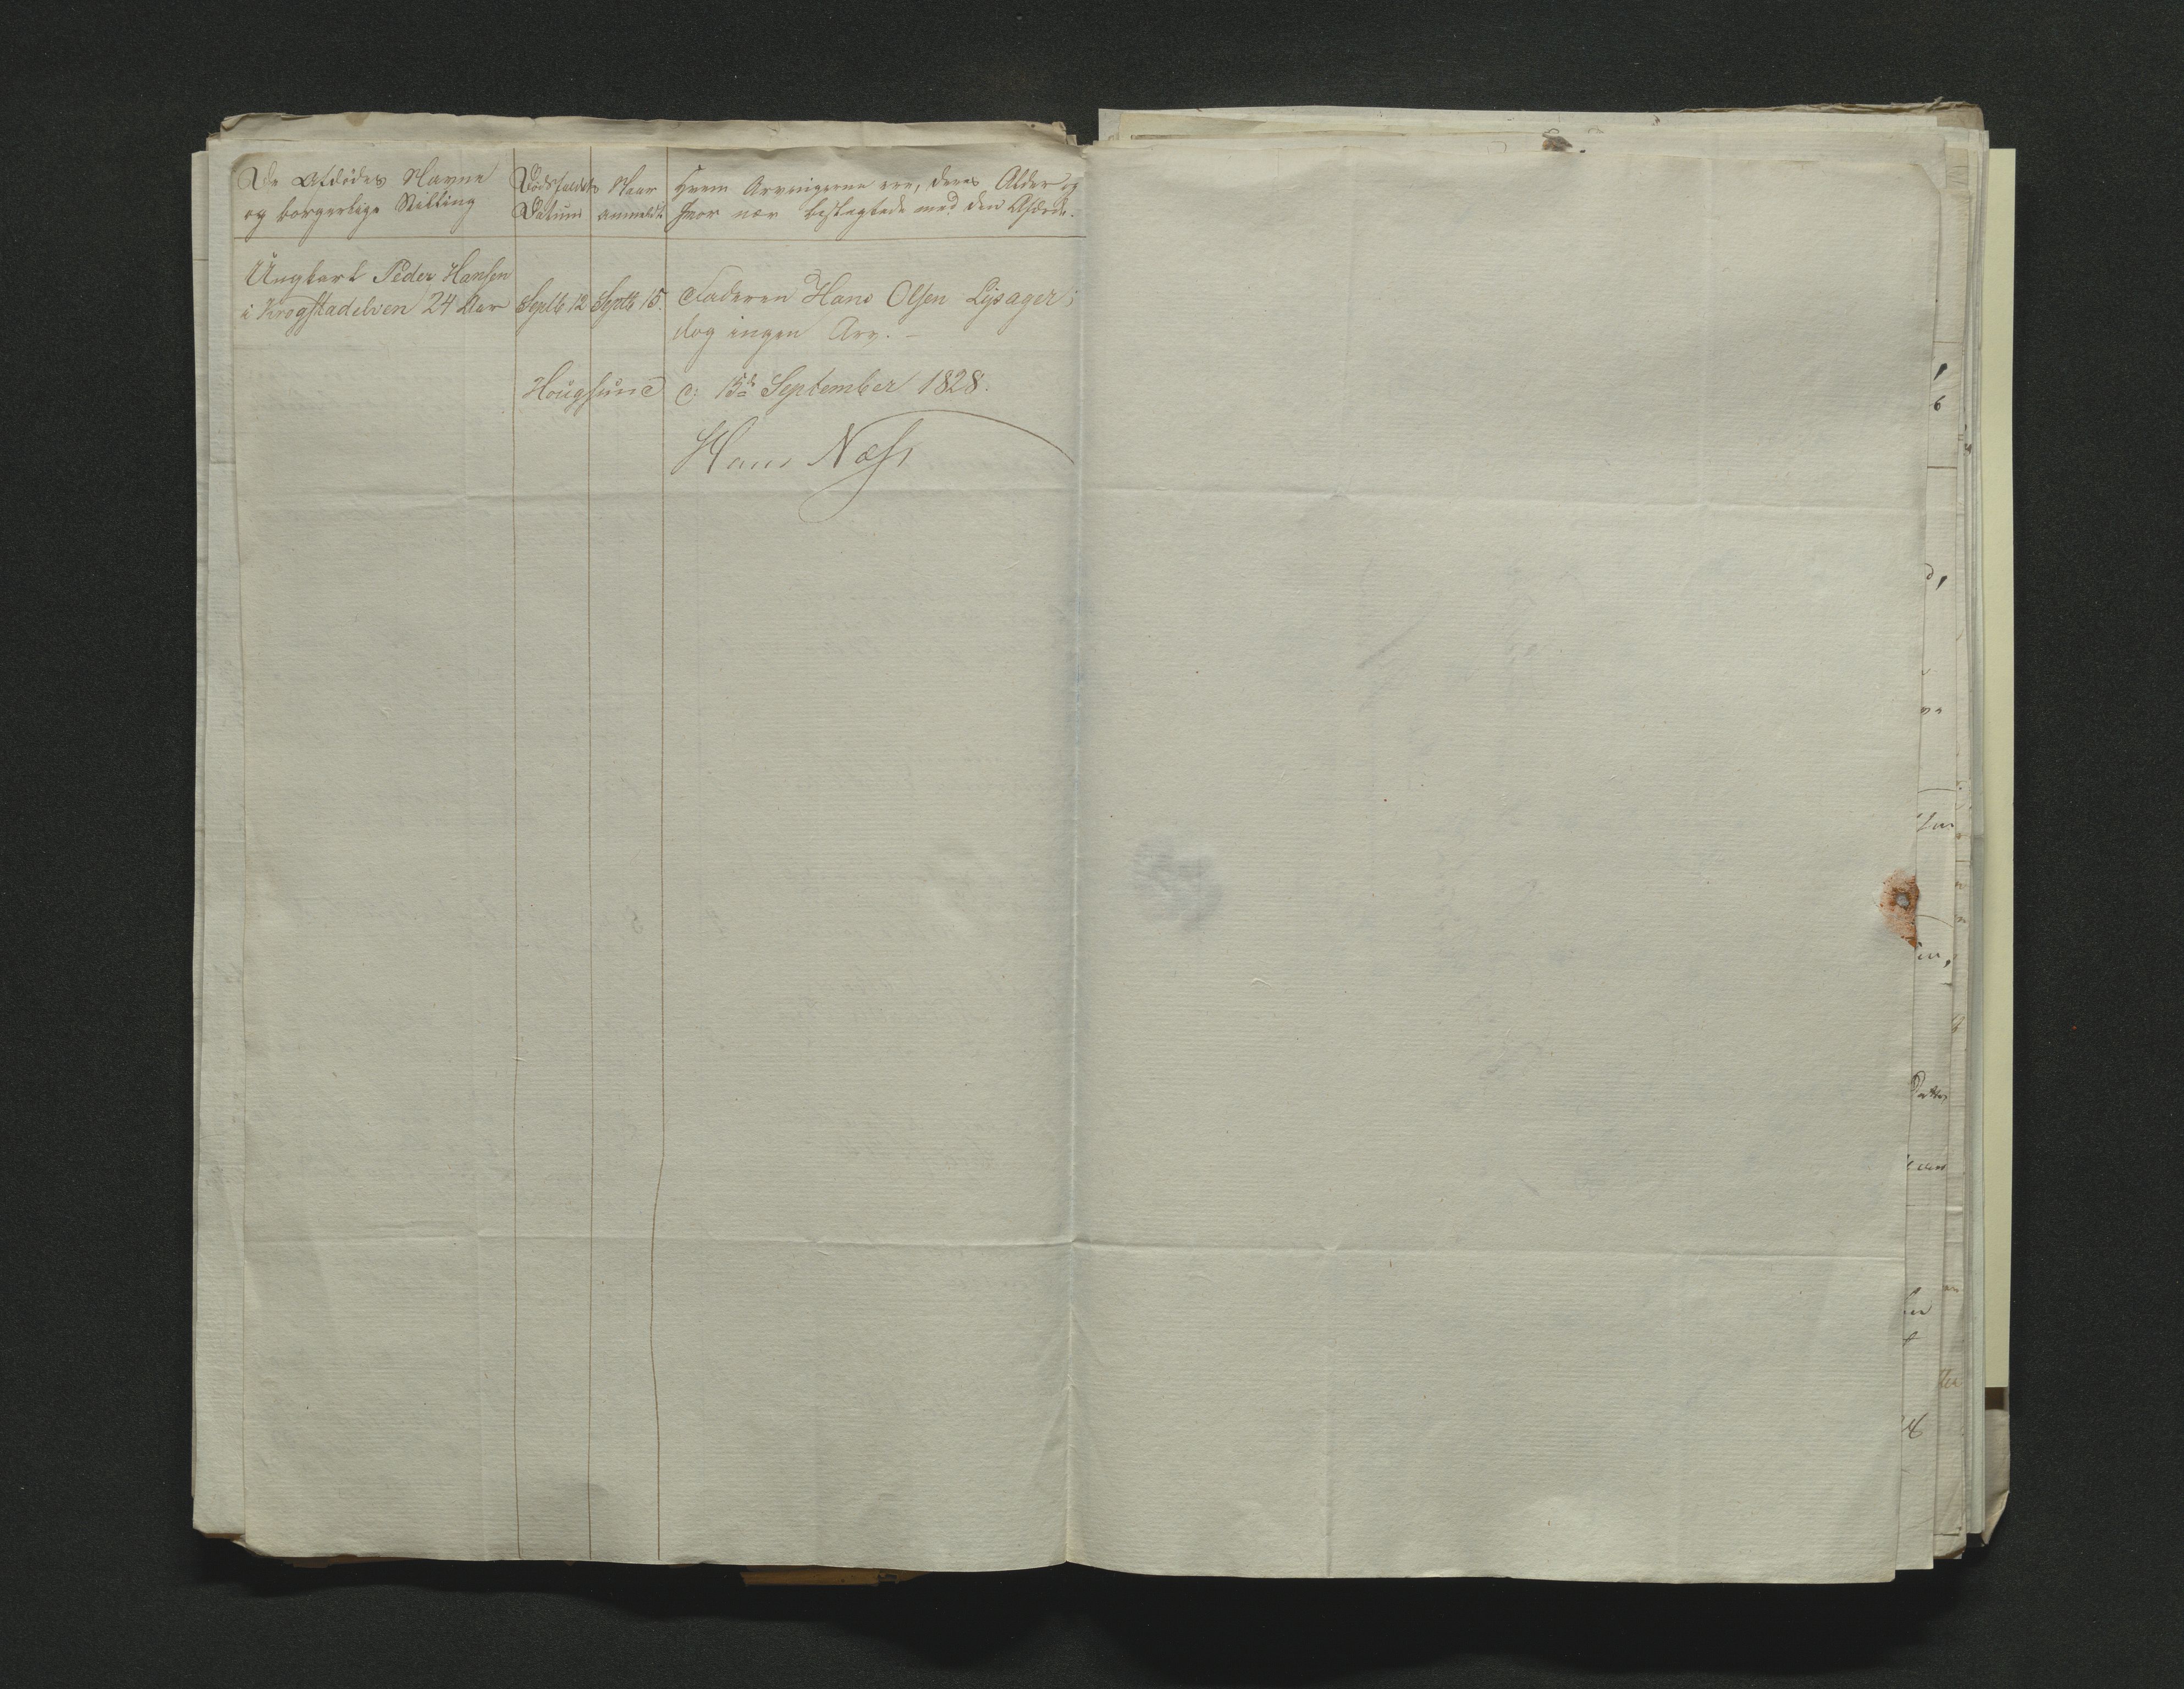 De Afdødes Navne
og borgerlige Stilling
Dødsfaldets
Datum
Naar
anmeldt
Hvem Arvingerne ere, deres Alder og
hvor nær beslægtede med den Afdøde.
Ungkarl Peder Hansen
i Krogstadelven 24 Aar
Septb 12
Septb 15.
Faderen Hans Olsen Lijsager;
dog ingen Arv. -
Hougsund d: 15de September 1828.
Hans Næss